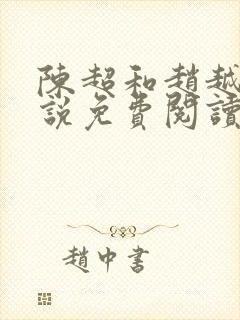 陳超和趙越
說免費閱讀
趙中書